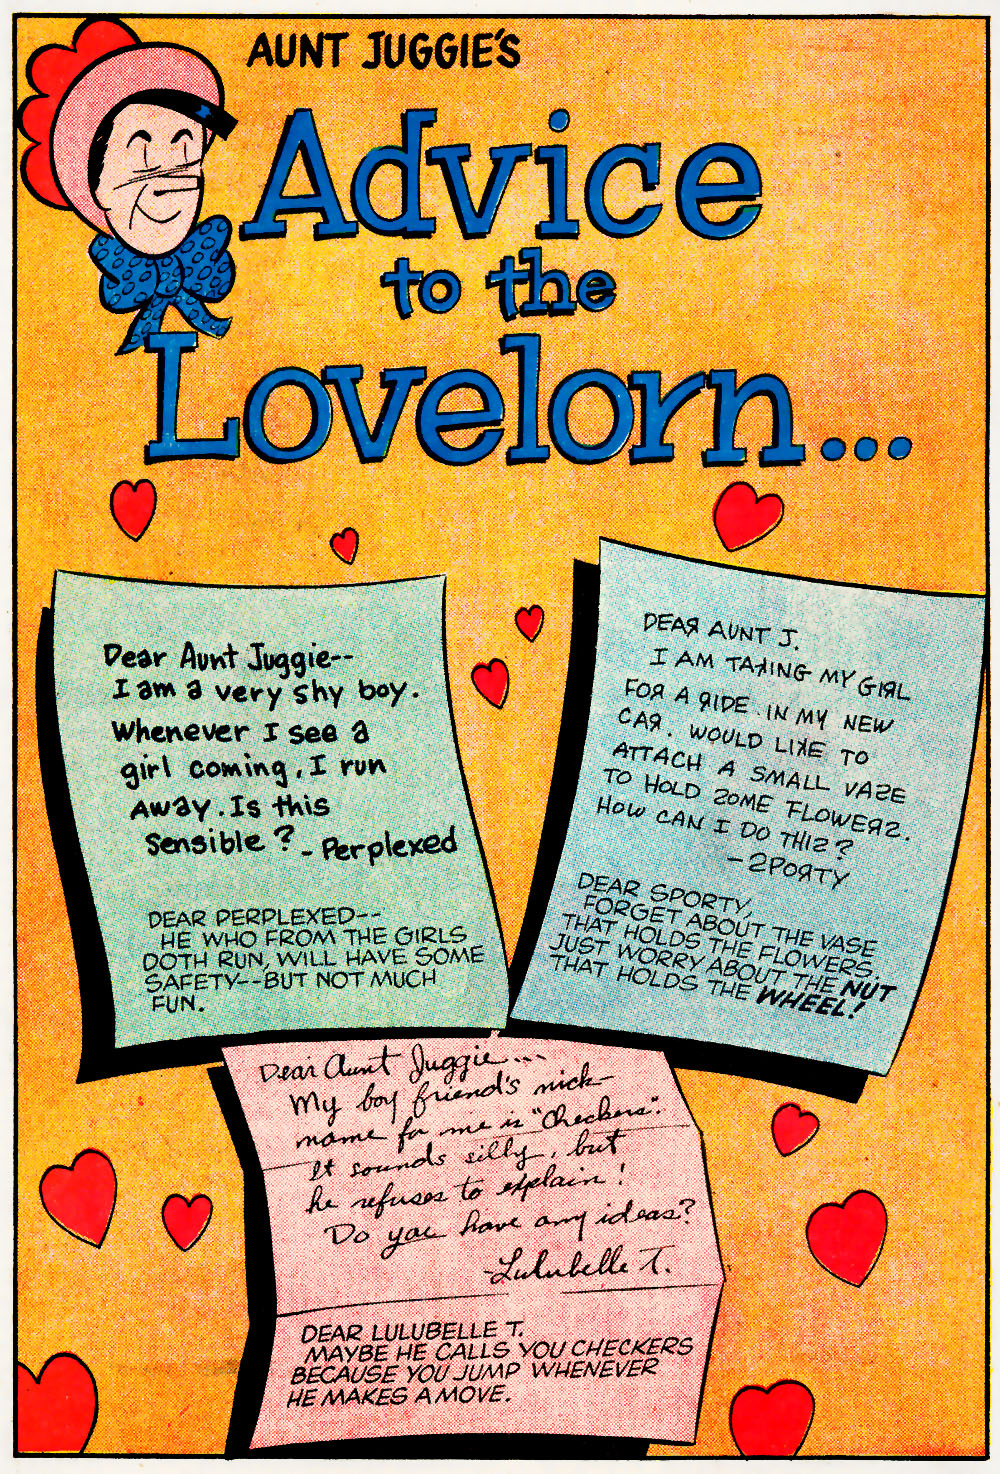 AUNT JUGGIE'S
Advice
to the
Lovelorn...
Dear Aunt Juggie--
I am a very shy boy.
Whenever I see a
girl coming, I run
away. Is this
Sensible?
- Perplexed
DEAR PERPLEXED--
HE WHO FROM THE GIRLS
DOTH RUN, WILL HAVE SOME
SAFETY--BUT NOT MUCH
FUN.
DEAЯ AUNT J.
I AM TAKING MY GIЯL
FOЯ A ЯIDE IN MY NEW
CAЯ. WOULD LIKE TO
ATTACH A SMALL VASE
TO HOLD SOME FLOWEЯS.
HOW CAN I DO THIS?
- SPOЯTY
DEAR SPORTY,
FORGET ABOUT THE VASE
THAT HOLDS THE FLOWERS.
JUST WORRY ABOUT THE NUT
THAT HOLDS THE WHEEL!
Dear Aunt Juggie...
My boy friend's nick-
name for me is "Checkers".
It sounds silly, but
he refuses to explain!
Do you have any ideas?
-Lulubelle T.
DEAR LULUBELLE T.
MAYBE HE CALLS YOU CHECKERS
BECAUSE YOU JUMP WHENEVER
HE MAKES A MOVE.